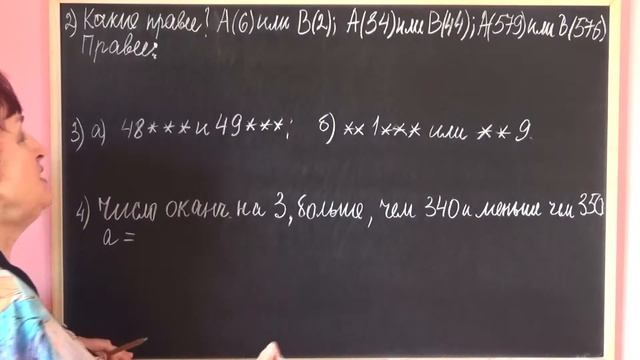 2) Какие правее? А(6) или В(2); А(34) или В(44); А(579) или В(576)
Правее:
3) а) 48*** и 49***; б) **1*** или **9.
4) Число оканч. на 3, больше, чем 340 и меньше чем 350
а =